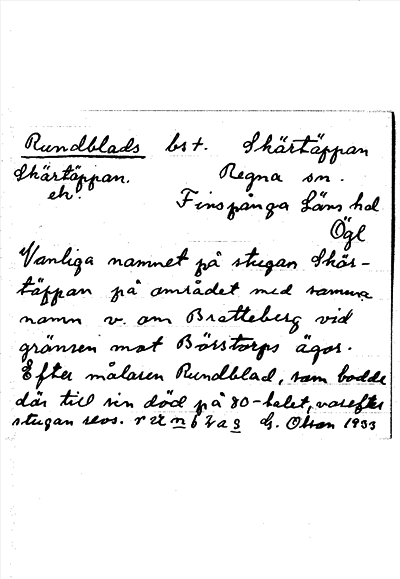 Rundblads bst. Skärtäppan
Skärtäppan. Regna sn.
eh. Finspånga Läns hd
Ögl
Vanliga namnet på stugan Skär-
täppan på området med samma
namn v. om Bratteberg vid
gränsen mot Börstorps ägor.
Efter målaren Rundblad, som bodde
där till sin död på 80-talet, varefter
stugan revs. G. Olson 1933